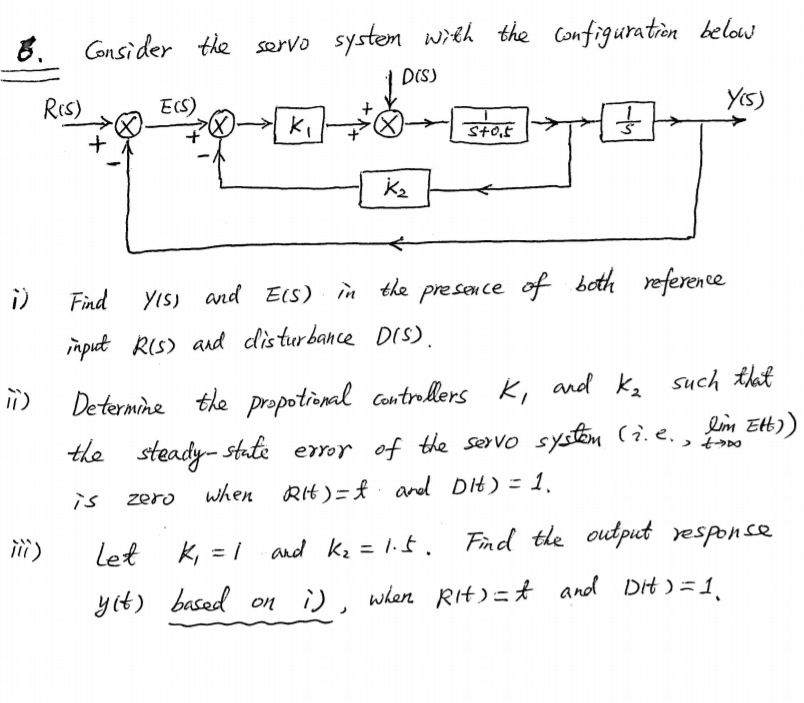 B. Consider the servo system with the configuration below
D(S)
R(S) E(S) Y(S)
+ - + - K1 + + 1/(S+0.5) 1/S
K2
i) Find Y(S) and E(S) in the presence of both reference
input R(S) and disturbance D(S).
ii) Determine the propotional controllers K1 and K2 such that
the steady-state error of the servo system (i.e., lim t→∞ E(t))
is zero when R(t)=t and D(t)=1.
iii) Let K1=1 and K2=1.5. Find the output response
y(t) based on i), when R(t)=t and D(t)=1.